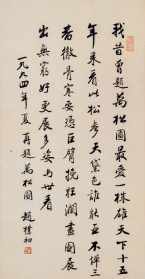 我昔曾題萬松圖最愛一株雄天下十五
年來看此松參天黛色誰能亞不憚三
者徹骨寒要憑巨臂挽狂瀾畫圖展
出無窮好更展多姿與世看
一九九四年夏再題萬松圖 趙樸初